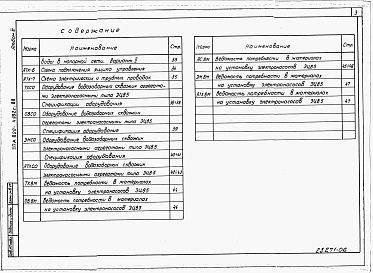 3
Содержание
Марка
Наименование
Стр.
воды в напорной сети. Вариант 2
33
АТХ-6
Схема подключения ящика управления
34
АТХ-7
Схема электрических и трубных проводок
35
ТХСО
Оборудование водозаборных скважин агрегата-
ми электронасосными типа ЭЦВ5
Спецификации оборудования
ОВСО
Оборудование водозаборных скважин
агрегатами электронасосными типа ЭЦВ5
Спецификация оборудования
39
ЭМСО
Оборудование водозаборных скважин
агрегатами электронасосными типа ЭЦВ5
Спецификация оборудования
АТХСО
Оборудование водозаборных скважин
электронасосными агрегатами типа ЭЦВ5
ТХ.ВМ
Ведомость потребности в материалах
на установку электронасосов ЭЦВ5
44
ОВ.ВМ
Ведомость потребности в материалах
на установку электронасосов ЭЦВ5
Марка
Наименование
Стр.
АС.ВМ
Ведомость потребности в материалах
на установку электронасосов ЭЦВ5
45,46
ЭМ.ВМ
Ведомость потребности в материалах
на установку электронасосов ЭЦВ5
47
АТХ.ВМ
Ведомость потребности в материалах
на установку электронасосов ЭЦВ5
47
22271-06